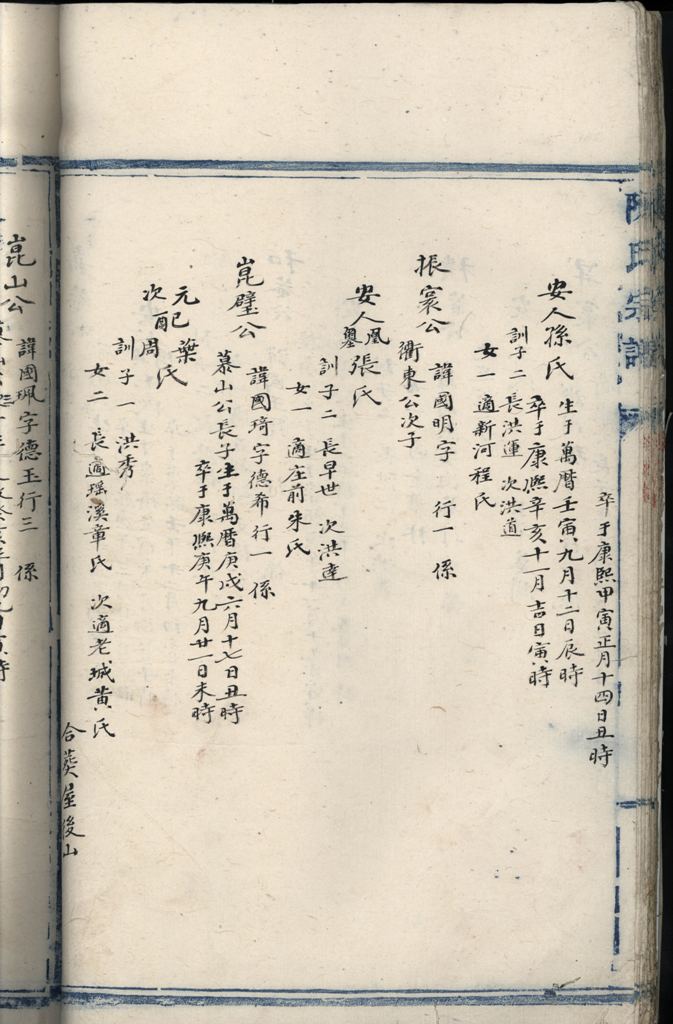 陳氏宗譜
卒于康熙甲寅正月十四日丑時
安人孫氏
生于萬曆壬寅九月十二日辰時
卒于康熙辛亥十一月吉日寅時
訓子二 長洪運 次洪道
女一 適新河程氏
振寰公
諱國明字 行一 係
衢東公次子
安人鳳墨張氏
訓子二 長早世 次洪達
女一 適庄前朱氏
崑璧公
諱國琦字德希 行一 係
慕山公長子生于萬曆庚戍六月十七日丑時
卒于康熙庚午九月廿一日未時
元配葉氏
次配周氏
訓子一 洪秀
女二 長適瑶溪章氏 次適老城黄氏
合葵屋後山
崑山公
諱國珮字德玉行三 係